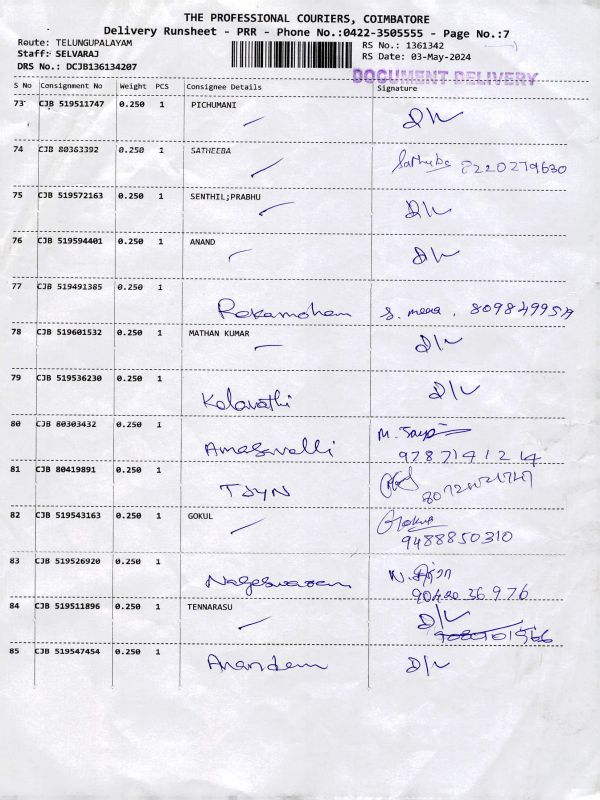 THE PROFESSIONAL COURIERS, COIMBATORE
Delivery Runsheet - PRR - Phone No.:0422-3505555 - Page No.:7
Route: TELUNGUPALAYAM RS No.: 1361342
Staff: SELVARAJ RS Date: 03-May-2024
DRS No.: DCJB136134207
DOCUMENT DELIVERY
S No Consignment No Weight PCS Consignee Details Signature
73 CJB 519511747 0.250 1 PICHUMANI D/L
74 CJB 80363392 0.250 1 SATHEEBA Satheeba 8220279630
75 CJB 519572163 0.250 1 SENTHIL;PRABHU D/L
76 CJB 519594401 0.250 1 ANAND D/L
77 CJB 519491385 0.250 1
Rekamohan S. meea, 8098499519
78 CJB 519601532 0.250 1 MATHAN KUMAR D/L
79 CJB 519536230 0.250 1 D/L
Kalavathi
80 CJB 80303432 0.250 1
Amasavalli 9787141214
81 CJB 80419891 0.250 1
TJYN
82 CJB 519543163 0.250 1 GOKUL Gokul
9488850310
83 CJB 519526920 0.250 1
Nageswaran 90420 36 976
84 CJB 519511896 0.250 1 TENNARASU D/L
85 CJB 519547454 0.250 1 Anandam D/L